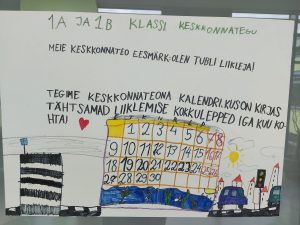 1A JA 1B KLASSI KESKKONNATEGU
MEIE KESKKONNATEO EESMÄRK-OLEN TUBLI LIIKLEJA!
TEGIME KESKKONNATEONA KALENDRI, KUS ON KIRJAS
TÄHTSAMAD LIIKLEMISE KOKKULEPPED IGA KUU KO-
HTA!
1 2 3 4 5 6 7 8
9 10 11 12 13 14 15 16
17 18 19 20 21 22 23
28 29 30